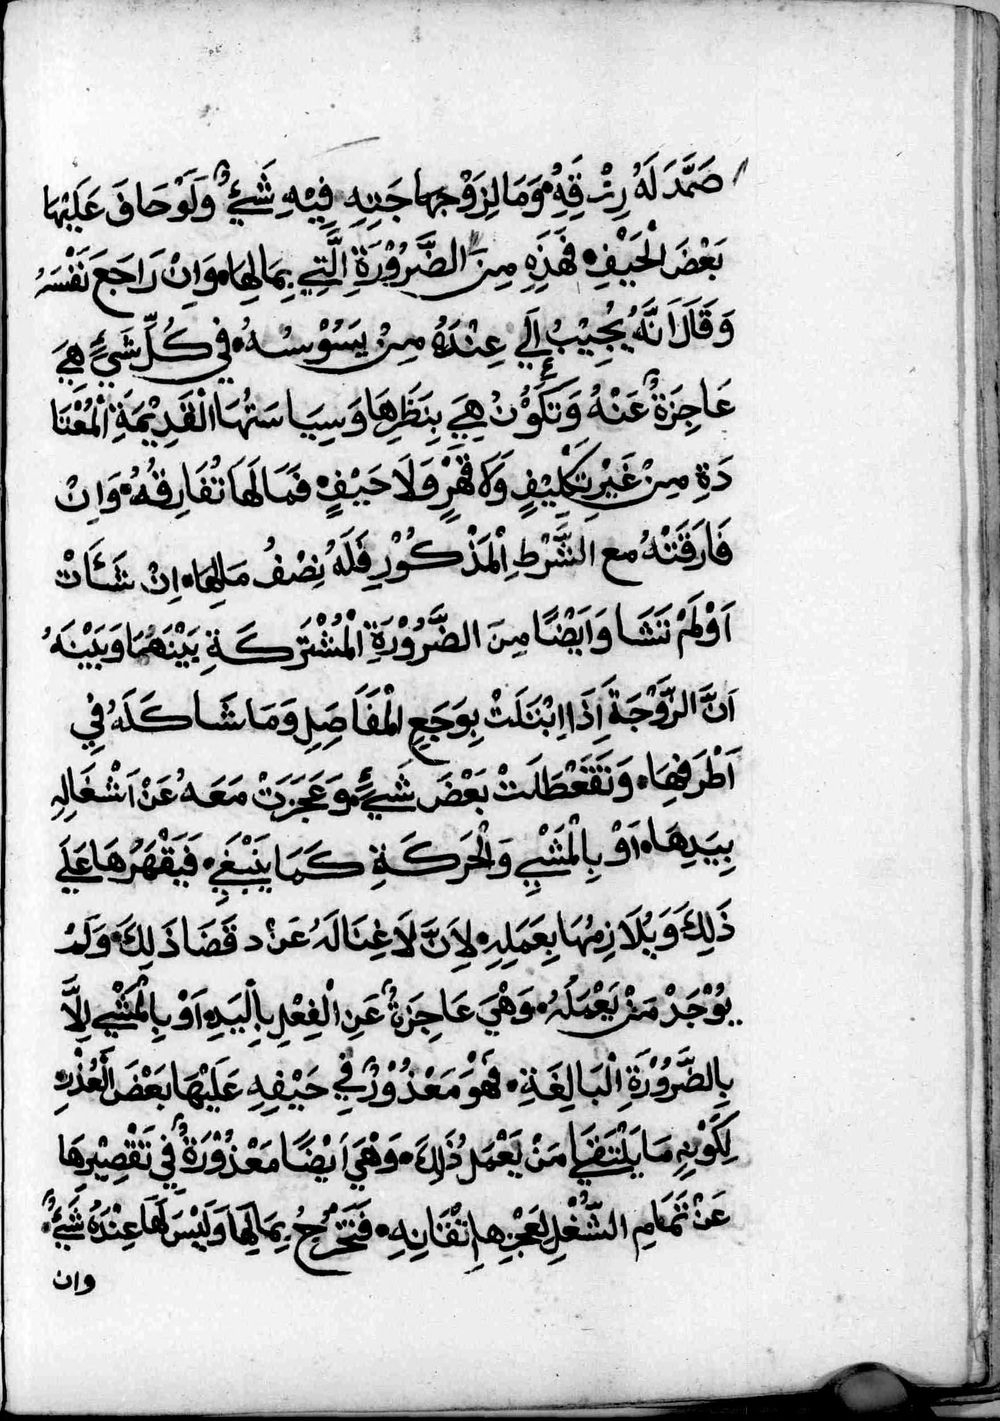 صَمَّدَ لَهُ رِزْقِهُ وَمَا لِزَوْجِهَا جَتِهِ فِيْهِ شَيْءٌ وَلَوْ حَافَ عَلَيْهَا
بَعْضَ الْحَيْفِ فَهَذِهِ مِنَ الضَّرُوْرَةِ الَّتِي بِمَالِهَا وَاِنْ رَاجَعَ نَفْسَهُ
وَقَالَ اَنَّهُ يُجِيْبُ اِلَي عِنْدَهُ مِنْ يَسُوْسُهُ فِي كُلِّ شَيْءٍ هِيَ
عَاجِزَةٌ عَنْهُ وَتَكُوْنُ هِيَ بِنَظَرِهَا وَسِيَاسَتُهَا الْقَدِيْمَةِ الْمُعْتَا
دَةِ مِنْ غَيْرِ تَكْلِيْفٍ وَلَا قَهْرٍ وَلَا حَيْفٍ فَمَا لَهَا تُفَارِقُهُ وَاِنْ
فَارَقَتْهُ مع الشَّرْطِ الْمَذْكُوْرِ فَلَهُ نِصْفُ مَالِهَا اِنْ شَئَاتْ
اَوْ لَمْ تَشَا وَاَيْضًا مِنَ الضَّرُوْرَةِ الْمُشْتَرِكَةِ بَيْنَهُمَا وَبَيْنَهُ
اَنَّ الزَّوْجَةَ اِذَا اِبْتَلَتْ بِوَجَعِ الْمَفَاصِلِ وَمَا شَاكَلَهُ فِي
اَطْرَفِهَا وَتَقَعْطَلَتْ بَعْضَ شَيْءٍ وَعَجَزَتْ مَعَهُ عَنْ اَشْغَالِهِ
بِيَدِهَا اَوْ بِالْمَشْيِ وَالْحَرَكَةِ كَمَا يَنْبَغِي فَيَقْهَرُهَا عَلَي
ذَلِكَ وَيُلَازِمُهَا بِعَمَلِهِ لِاَنَّ لَا غِنَا لَهُ عَنْ د قَضَا ذَلِكَ وَلَمْ
يُوْجَدْ مَنْ يَعْمَلُهُ وَهْيَ عَاجِزَةٌ عَنِ الْفِعْلِ بِالْيَدِ اَوْ بِالْمَشْيِ اِلَّا
بِالضَّرُوْرَةِ الْبَالِغَةِ فَهْوَ مَعْذُوْرٌ فِي حَيْفِهِ عَلَيْهَا بَعْضَ الْعُذْرِ
لِكَوْنِهِ مَا يَلْتَقَي مَنْ يَعْمَلُ ذَلِكَ وَهْيَ اَيْضًا مَعْذُوْرَةٌ فِي تَقْصِيْرِهَا
عَنْ تَمَامِ الشُّغْلِ لِعَجْزِهَا اِتْقَانِهِ فَتَخْرُجُ بِمَالِهَا وَلَيْسَ لَهَا عِنْدَهُ شَيْءٌ
وان